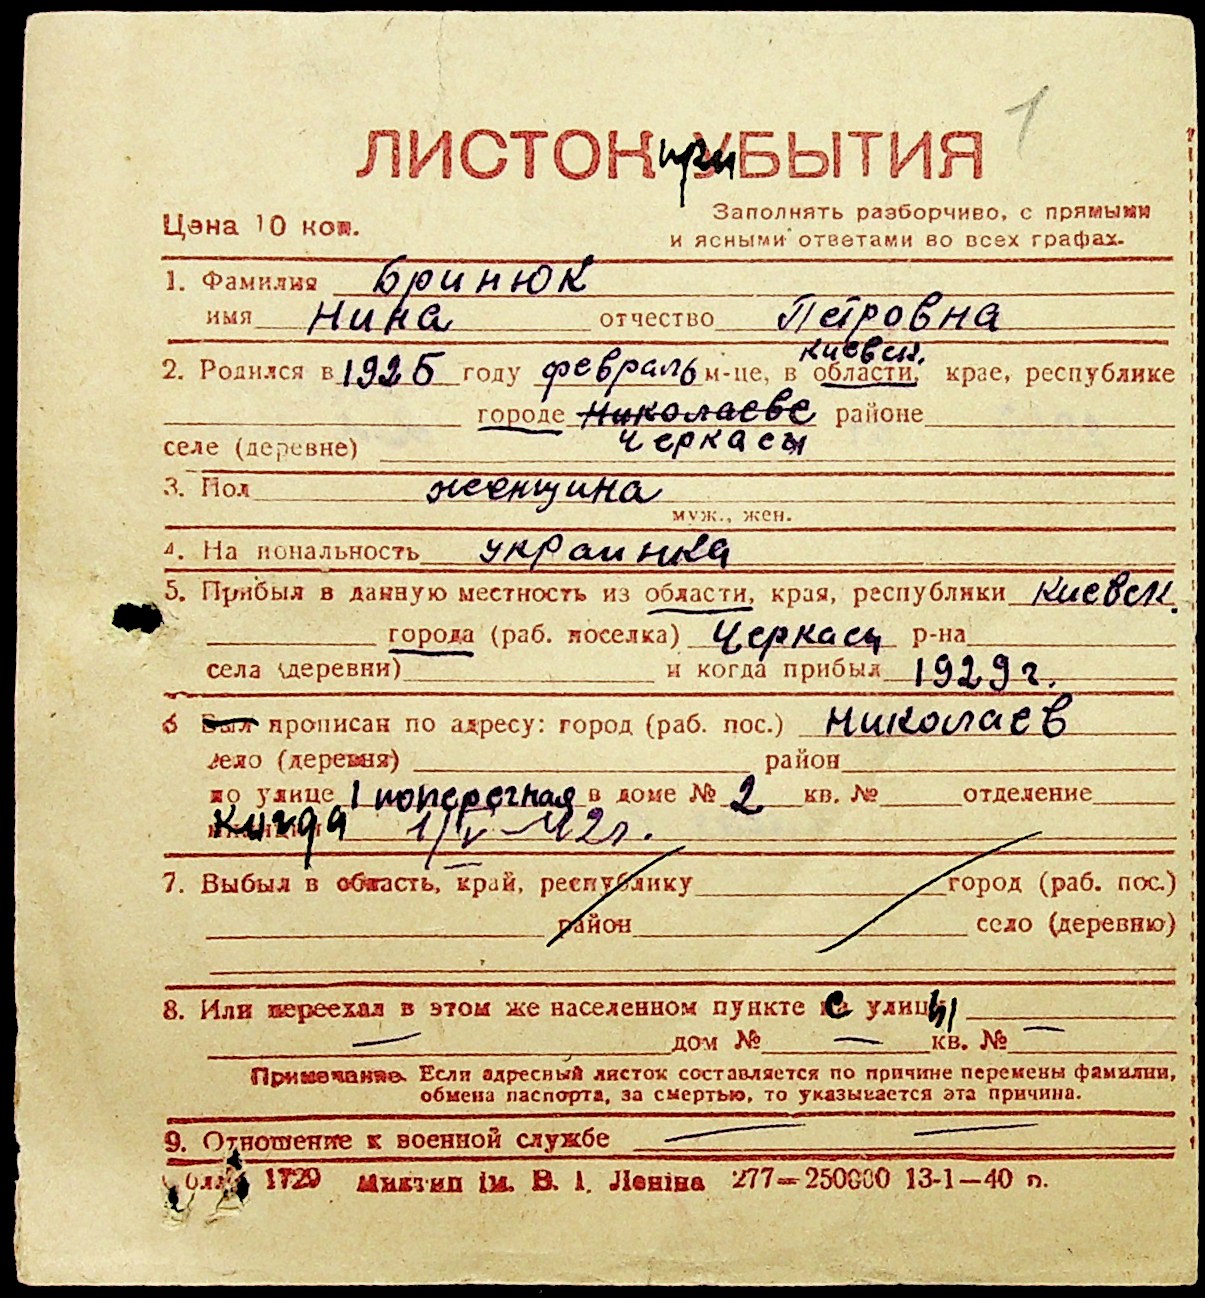 1
ЛИСТОК при УБЫТИЯ
Цена 10 коп.
Заполнять разборчиво, с прямыми
и ясными ответами во всех графах.
1. Фамилия Бринюк
имя Нина отчество Петровна
киевск.
2. Родился в 1925 году февраль м-це, в области, крае, республике
городе Николаеве районе
Черкасы
селе (деревне)
3. Пол женщина
муж., жен.
4. На иональность украинка
5. Прибыл в данную местность из области, края, республики Киевск.
города (раб. поселка) Черкасы р-на
села (деревни) и когда прибыл 1929 г.
6 Был прописан по адресу: город (раб. пос.) Николаев
село (деревня) район
по улице 1 поперечная в доме № 2 кв. № отделение
когда 1/V-42 г.
7. Выбыл в область, край, республику город (раб. пос.)
район село (деревню)
8. Или переехал в этом же населенном пункте с улицы
— дом № — кв. № —
Примечание. Если адресный листок составляется по причине перемены фамилии,
обмена паспорта, за смертью, то указывается эта причина.
9. Отношение к военной службе — —
1729 Миктип ім. В. І. Леніна 277—250000 13-1—40 п.